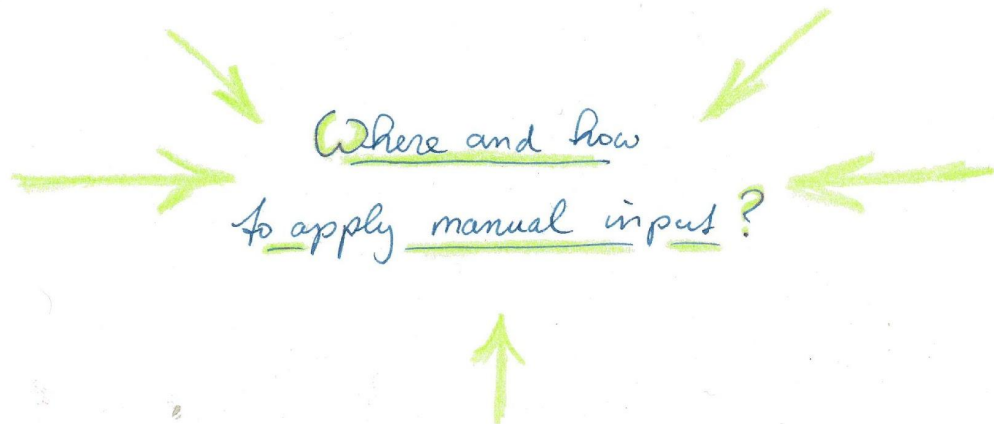 Where and how
to apply manual input?